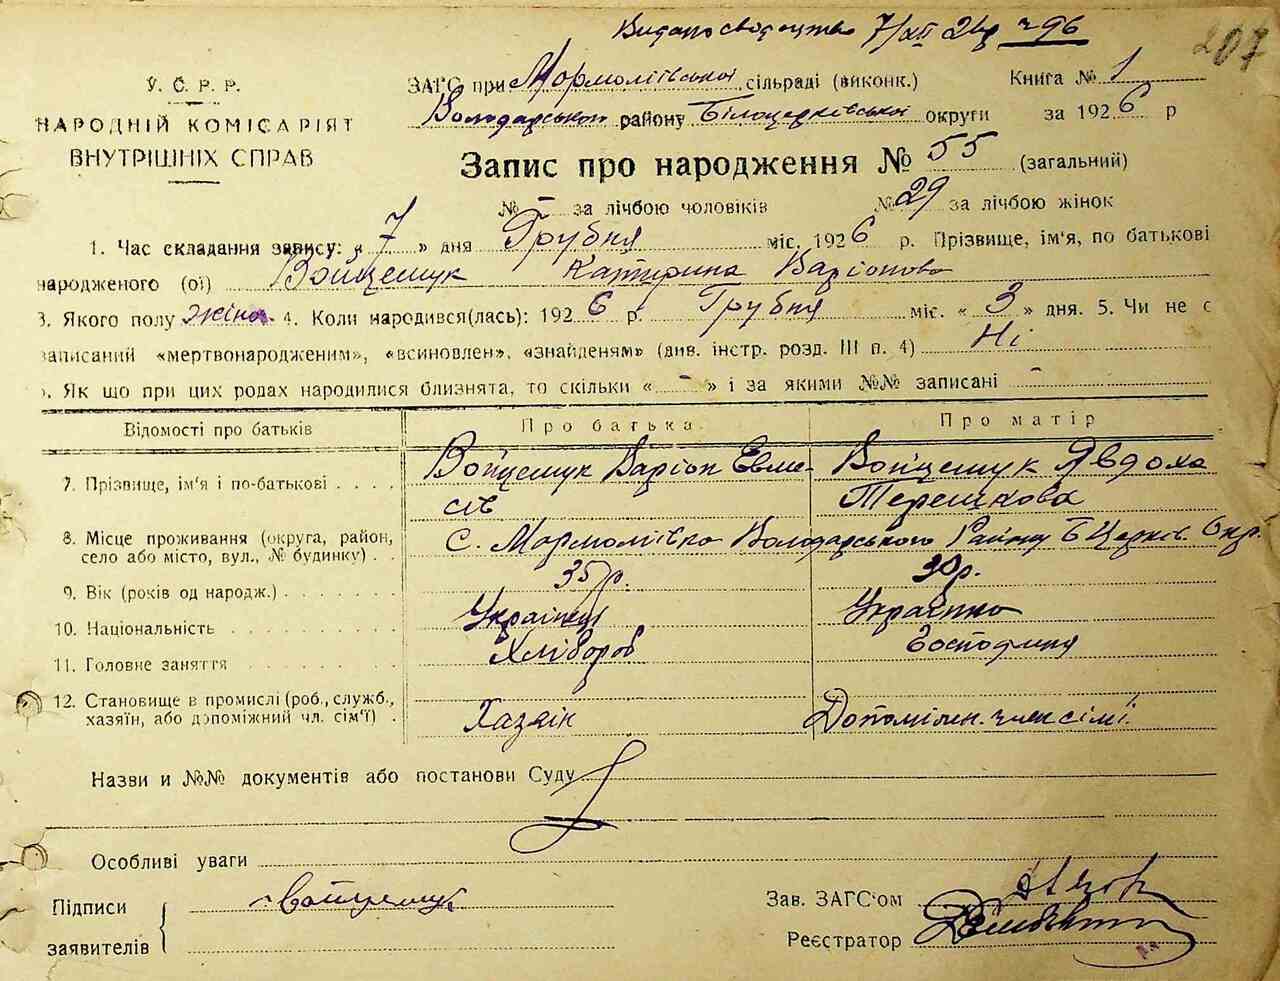 Видано свідоцтво 7/XII 26р № 96
207
У. С. Р. Р.
НАРОДНІЙ КОМІСАРІЯТ
ВНУТРІШНІХ СПРАВ
ЗАГС при Мармоліївській сільраді (виконк.) Книга № 1
Володарського району Білоцерківської округи за 1926 р
Запис про народження № 55 (загальний)
№ – за лічбою чоловіків № 29 за лічбою жінок
1. Час складання запису: « 7 » дня Грудня міс. 1926 р. Прізвище, ім'я, по батькові
народженого (ої) Войцешук Катерина Ларіонова
3. Якого полу жіно. 4. Коли народився(лась): 1926 р. Грудня міс. « 3 » дня. 5. Чи не є
записаний «мертвонародженим», «всиновлен», «знайденям» (див. інстр. розд. III п. 4) Ні
Як що при цих родах народилися близнята, то скільки « – » і за якими №№ записані –
Відомості про батьків Про батька Про матір
7. Прізвище, ім'я і по-батькові Войцешук Ларіон Евме- Войцешук Явдоха
сів Терешкова
8. Місце проживання (округа, район, село або місто, вул., № будинку) С. Мармоліївка Володарського Району Б Церків. Окр.
9. Вік (років од народж.) 35 р. 30 р.
10. Національність Українець Українка
11. Головне заняття Хлібороб Господиня
12. Становище в промислі (роб., служб., хазяїн, або допоміжний чл. сім'ї) Хазяїн Допоміжн. член сімї
Назви и №№ документів або постанови Суду
Особливі уваги
Підписи Войцешук Зав. ЗАГС'ом
заявителів Реєстратор